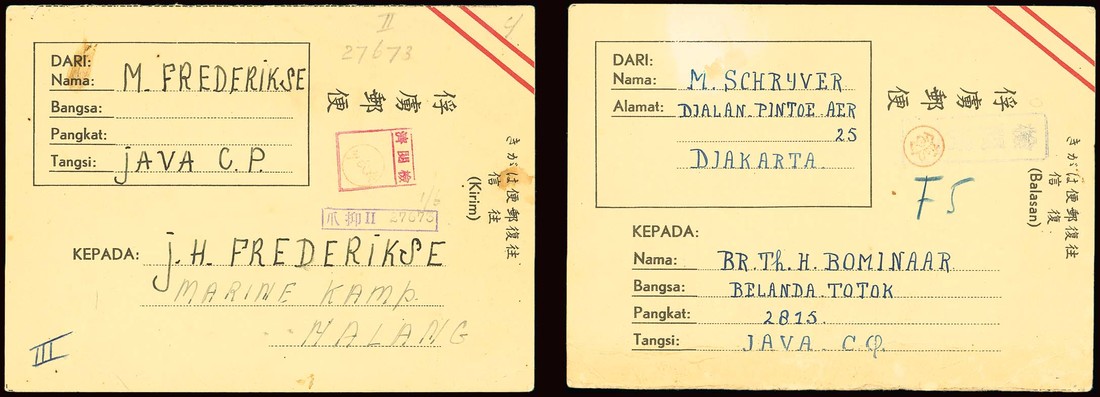 II
27673
DARI:
Nama: M. FREDERIKSE
Bangsa:
Pangkat:
Tangsi: JAVA C.P.
俘虜郵便
往復郵便はがき
往信
(Kirim)
濟閱檢
1/6
爪抑II 27673
KEPADA: J. H. FREDERIKSE
MARINE KAMP.
MALANG
III
DARI:
Nama: M. SCHRYVER
Alamat: DJALAN. PINTOE. AER
25
DJAKARTA
俘虜郵便
往復郵便はがき
復信
(Balasan)
F5
KEPADA:
Nama: BR. Th. H. BOMINAAR
Bangsa: BELANDA. TOTOK
Pangkat: 2815.
Tangsi: JAVA C.P.